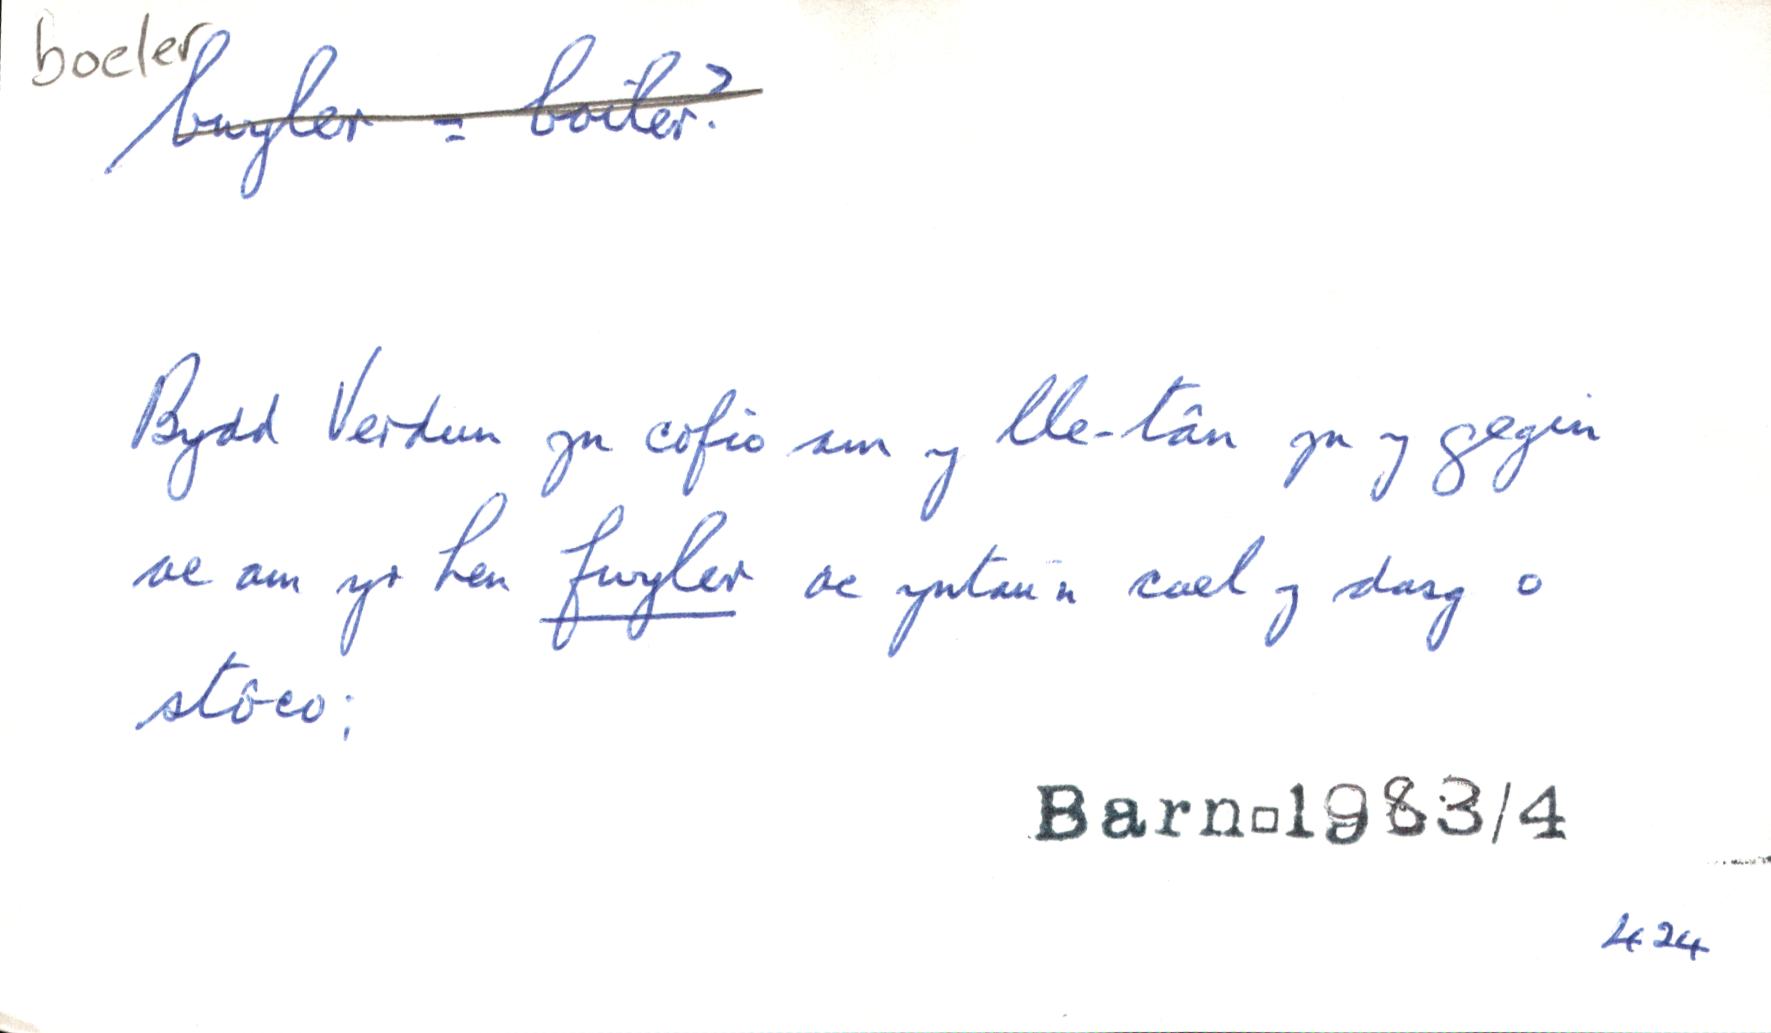 boeler
bwyler = boiler?
Bydd Verdun yn cofio am y lle-tân yn y gegin
ac am yr hen fwyler ac yntau'n cael y dasg o
stôco;
Barn 1983/4
424